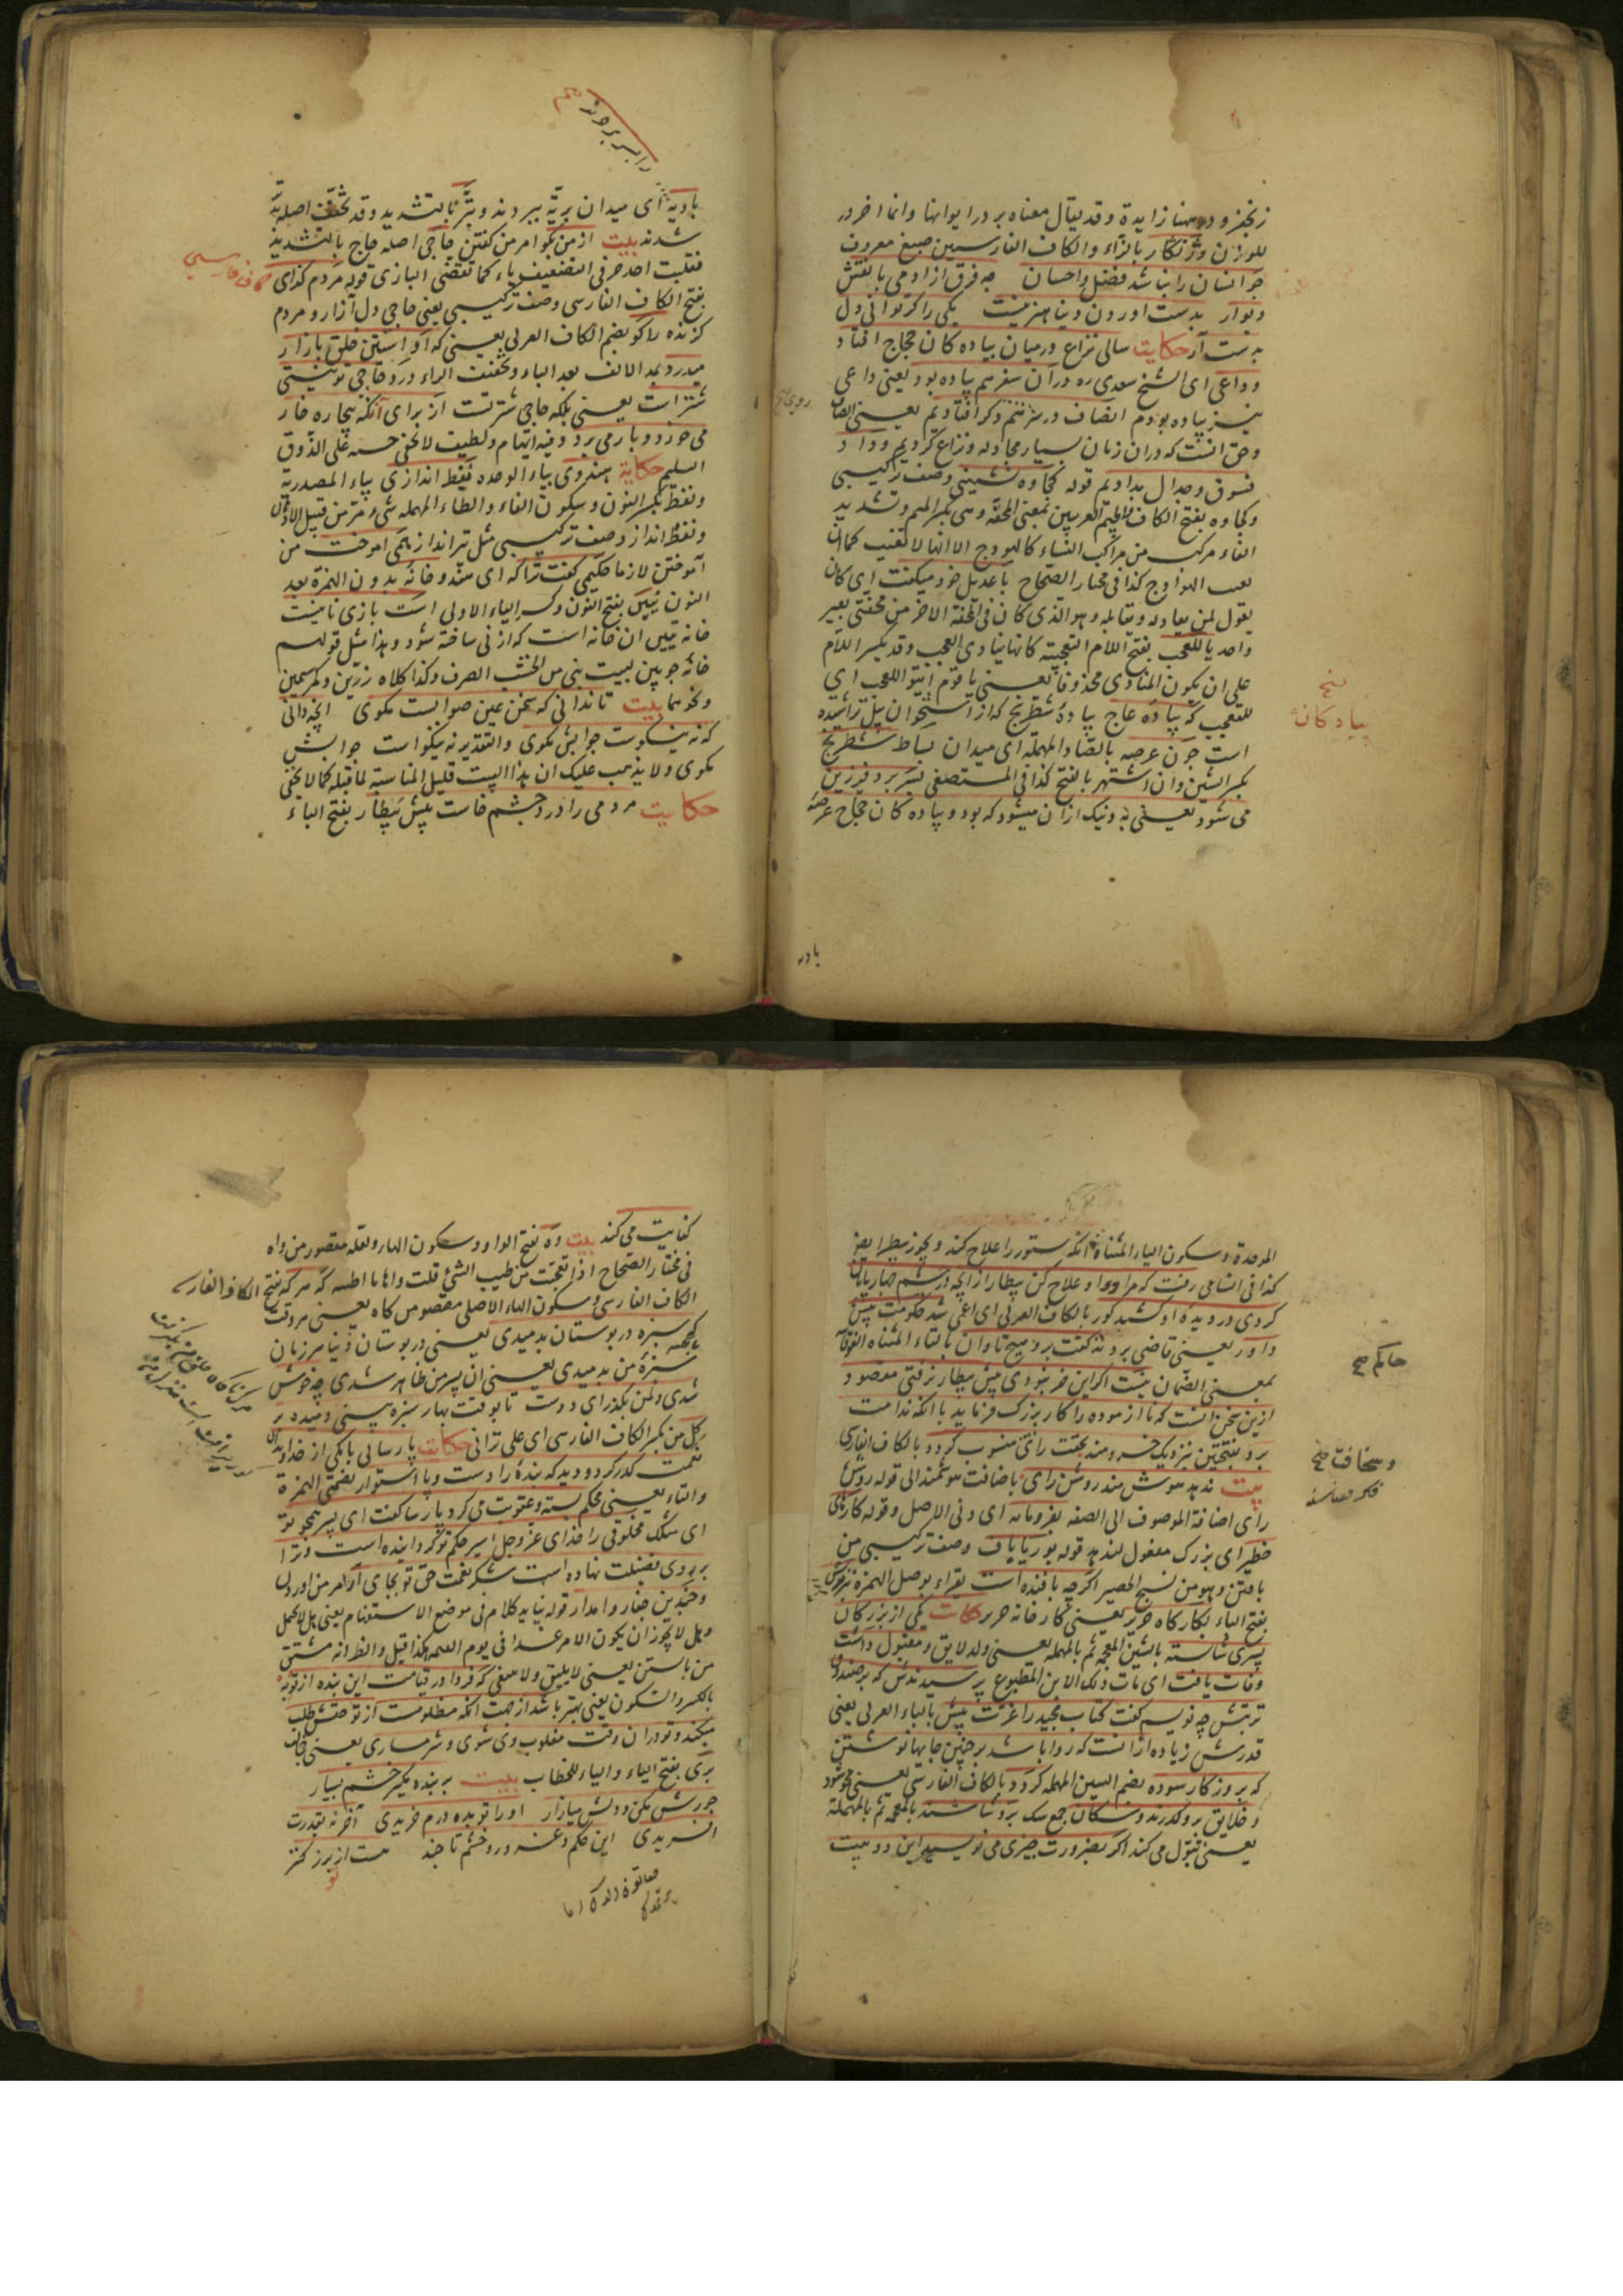 زنجفر و در همنا زایدة و قد یقال معناه بر در ایوانها و انما اخر در
للوزن و زنکار بالزاء و الکاف الفارسیین صبغ معروف
جو انسان را نباشد فضل و احسان چه فرق از ادمی با نقش
دیوار بدست اوردن دنیا هنر نیست یکی را کر توانی دل
بدست آر حکایت سالی نزاع در میان پیاده کان حجاج افتاد
و داعی ای الشیخ سعدی ره در آن سفر هم پیاده بود یعنی داعی
نیز پیاده بودم انصاف در سر هم و کر افتادیم یعنی انصاف
و حق انست که دران زمان بسیار مجادله و نزاع کردیم و داد
فسوق و جدال بدادیم قوله کجاوه نشینی وصف ترکیبی
و کجاوه بفتح الکاف و الجیم العربیین بمعنی المحفة و هی بکسر المیم و تشدید
الفاء مرکب من مراکب النساء کالهودج الا انها لا تقبب کما
تقبب الهوادج کذا فی مختار الصحاح با عدیل خود میکفت ای کان
یقول لمن یعادله و یقابله و هو الذی کان فی المحفة الاخر من محفتی بعیر
واحد یا للعجب بفتح اللام التعجبیة کانها ینادی العجب و قد یکسر اللام
علی ان یکون المنادی محذوفا یعنی یا قوم ایتوا للعجب ای
للتعجب که پیاده عاج پیادۀ شطرنج که از استخوان پیل تراشیده
است چون عرصه بالصاد المهمله ای میدان بساط شطرنج
بکسر الشین و ان اشتهر بالفتح کذا فی المستصفی بسر برد فرزین
می شود یعنی به و نیک ازان میشود که بود و پیاده کان حجاج عرصۀ
پیادکان
بادیه
بادیه را ای میدان بریّه ببردند و بتر بالتشدید و قد تخفف اصله بد
شدند بیت از من بکو امر من کفتن حاجی اصله حاج بالتشدید
فقلبت احد حرفی التضعیف یاء کما تقضی البازی قوله مردم کزای
بفتح الکاف الفارسی وصف ترکیبی یعنی حاجی دل آزار و مردم
کزنده را کو بضم الکاف العربی یعنی که او استین خلق بازار
میدرد بمد الالف بعد الباء و تخفیف الراء درد حاجی تو نیستی
شتر است یعنی بلکه حاجی شترتست از برای آنکه بیچاره خار
می خورد و بار می برد و فیه ایهام و لطیف لا یخفی حسنه علی الذوق
السلیم حکایة هندوی بیاء الوحده نفط اندازی بیاء المصدریة
و نفط بکسر النون و سکون الفاء و الطاء المهمله شیء من قبیل الادهان
و نفط انداز وصف ترکیبی مثل تیرانداز همی اموخت من
آموختن لازما حکیمی کفت ترا که ای هندو خانه بدون الهمزة بعد
النون نیین بفتح النون و کسر الیاء الاولی است بازی نه اینست
خانه نیین ان خانه است که از نی ساخته شود و هذا مثل قولهم
خانۀ چوبین لبیت بنی من الخشب الصرف و کذا کلاه زرین و کمر سیمین
و نحوهما بیت تا ندانی که سخن عین صوابست مکوی انچه دانی
که نه نیکوست جوابش مکوی و التقدیر نه نیکو است جوابش
مکوی و لا یذهب علیک ان هذا البیت قلیل المناسبة لما قبله کما لا یخفی
حکایت مردمی را درد چشم خاست پیش بیطار بفتح الباء
کاف فارسی
الموحدة و سکون الیاء المثناة انکه ستور را علاج کند و یجوز بیطر ایضا
کذا فی السامی رفت که مرا دوا و علاج کن بیطار از انچه در چشم چهارپایان
کردی در دیدۀ او کشید کور بالکاف العربی ای اعمی شد حکومت پیش
داور یعنی قاضی بردند کفت برو هیچ تاوان بالتاء المثناه الفوقانیة
بمعنی الضمان نیست اکر این خر نبودی پیش بیطار نرفتی مقصود
ازین سخن انست که نا ازموده را کار بزرک فرماید با انکه ندامت
برد بفتحتین نزدیک خردمند بخفت رای منسوب کردد بالکاف الفارسی
بیت ندهد هوش مند روشن رای باضافت هوشمند الی قوله روشن
رای اضافة الموصوف الی الصفه بفرومایه ای دنی الاصل و قوله کارهای
خطیر ای بزرک مفعول لندهد قوله بوریاباف وصف ترکیبی من
بافتن و هو من نسج الحصیر اکرچه بافنده است یقراء بوصل الهمزة نبرندش
بفتح الباء بکارکاه حریر یعنی کارخانه حریر حکایت یکی از بزرکان
پسری شایسته بالشین المعجمة ثم بالمهمله یعنی ولد لایق و مقبول داشت
وفات یافت ای مات ذلک الابن المطبوع پرسیدندش که بر صندوق
تربتش چه نویسیم کفت کتاب مجید را عزت بیش بالباء العربی یعنی
قدرش زیاده ازانست که روا باشد بر چنین جایها نوشتن
که بروزکار سوده بضم السین المهمله کردد بالکاف الفارسی یعنی محو شود
و خلایق برو کذرند و سکان جمع سک برو شاشند بالمعجمه ثم بالمهملة
یعنی تبول می کند اکر بضرورت چیزی می نویسید این دو بیت
حاکم صح
و سخافت صح
کفایت می کند بیت وه بفتح الواو و سکون الهاء و لعله مقصور من واه
فی مختار الصحاح اذا تعجبت من طیب الشئ قلت واها ما اطیبه که هر که بفتح الکاف الفارسی
الکاف الفارسی و سکون الهاء الاصلی مقصوص من کاه یعنی هر وقت
که سبزه در بوستان بدمیدی یعنی در بوستان دنیا هر زمان
سبزۀ من بدمیدی یعنی ان پسر من ظاهر شدی چه خوش
شدی دل من بکذر ای دوست تا بوقت بهار سبزه بینی دمیده بر
کل من بکسر الکاف الفارسی ای علی ترابی حکایت پارسایی بر یکی از خداوندان
نعمت کذر کرد و دید که بنده را دست و پا استوار بضمتی الهمزة
و التاء یعنی محکم بسته و عقوبت می کرد پارسا کفت ای پسر همچو تو
ای مثلک مخلوقی را خدای عز و جل اسیر حکم تو کردانیده است و ترا
بر وی فضیلت نهاده است شکر نعمت حق تو بجای آر امر من اوردن
و چندین جفا روا مدار قوله نباید کلام فی موضع الاستفهام یعنی بل لا یحمل
و هل لا یجوز ان یکون الامر غدا فی یوم القیمه هکذا قیل و الظ انه مشتق
من بایستن یعنی لا یلیق و لا ینبغی که فردا در قیامت این بنده از تو به
بالکسر و السکون یعنی بهتر باشد از جهت انکه مظلومست از تو حقش طلب
میکند و تو دران وقت مغلوب وی شوی و شرمساری یعنی خجالت
بری بفتح الباء و الیاء للخطاب بیت بر بنده مکیر خشم بسیار
جورش مکن و دلش میازار او را تو بده درم خریدی آخر نه بقدرت
افریدی این حکم و غرور و خشم تا چند هست از تو بزرکتر